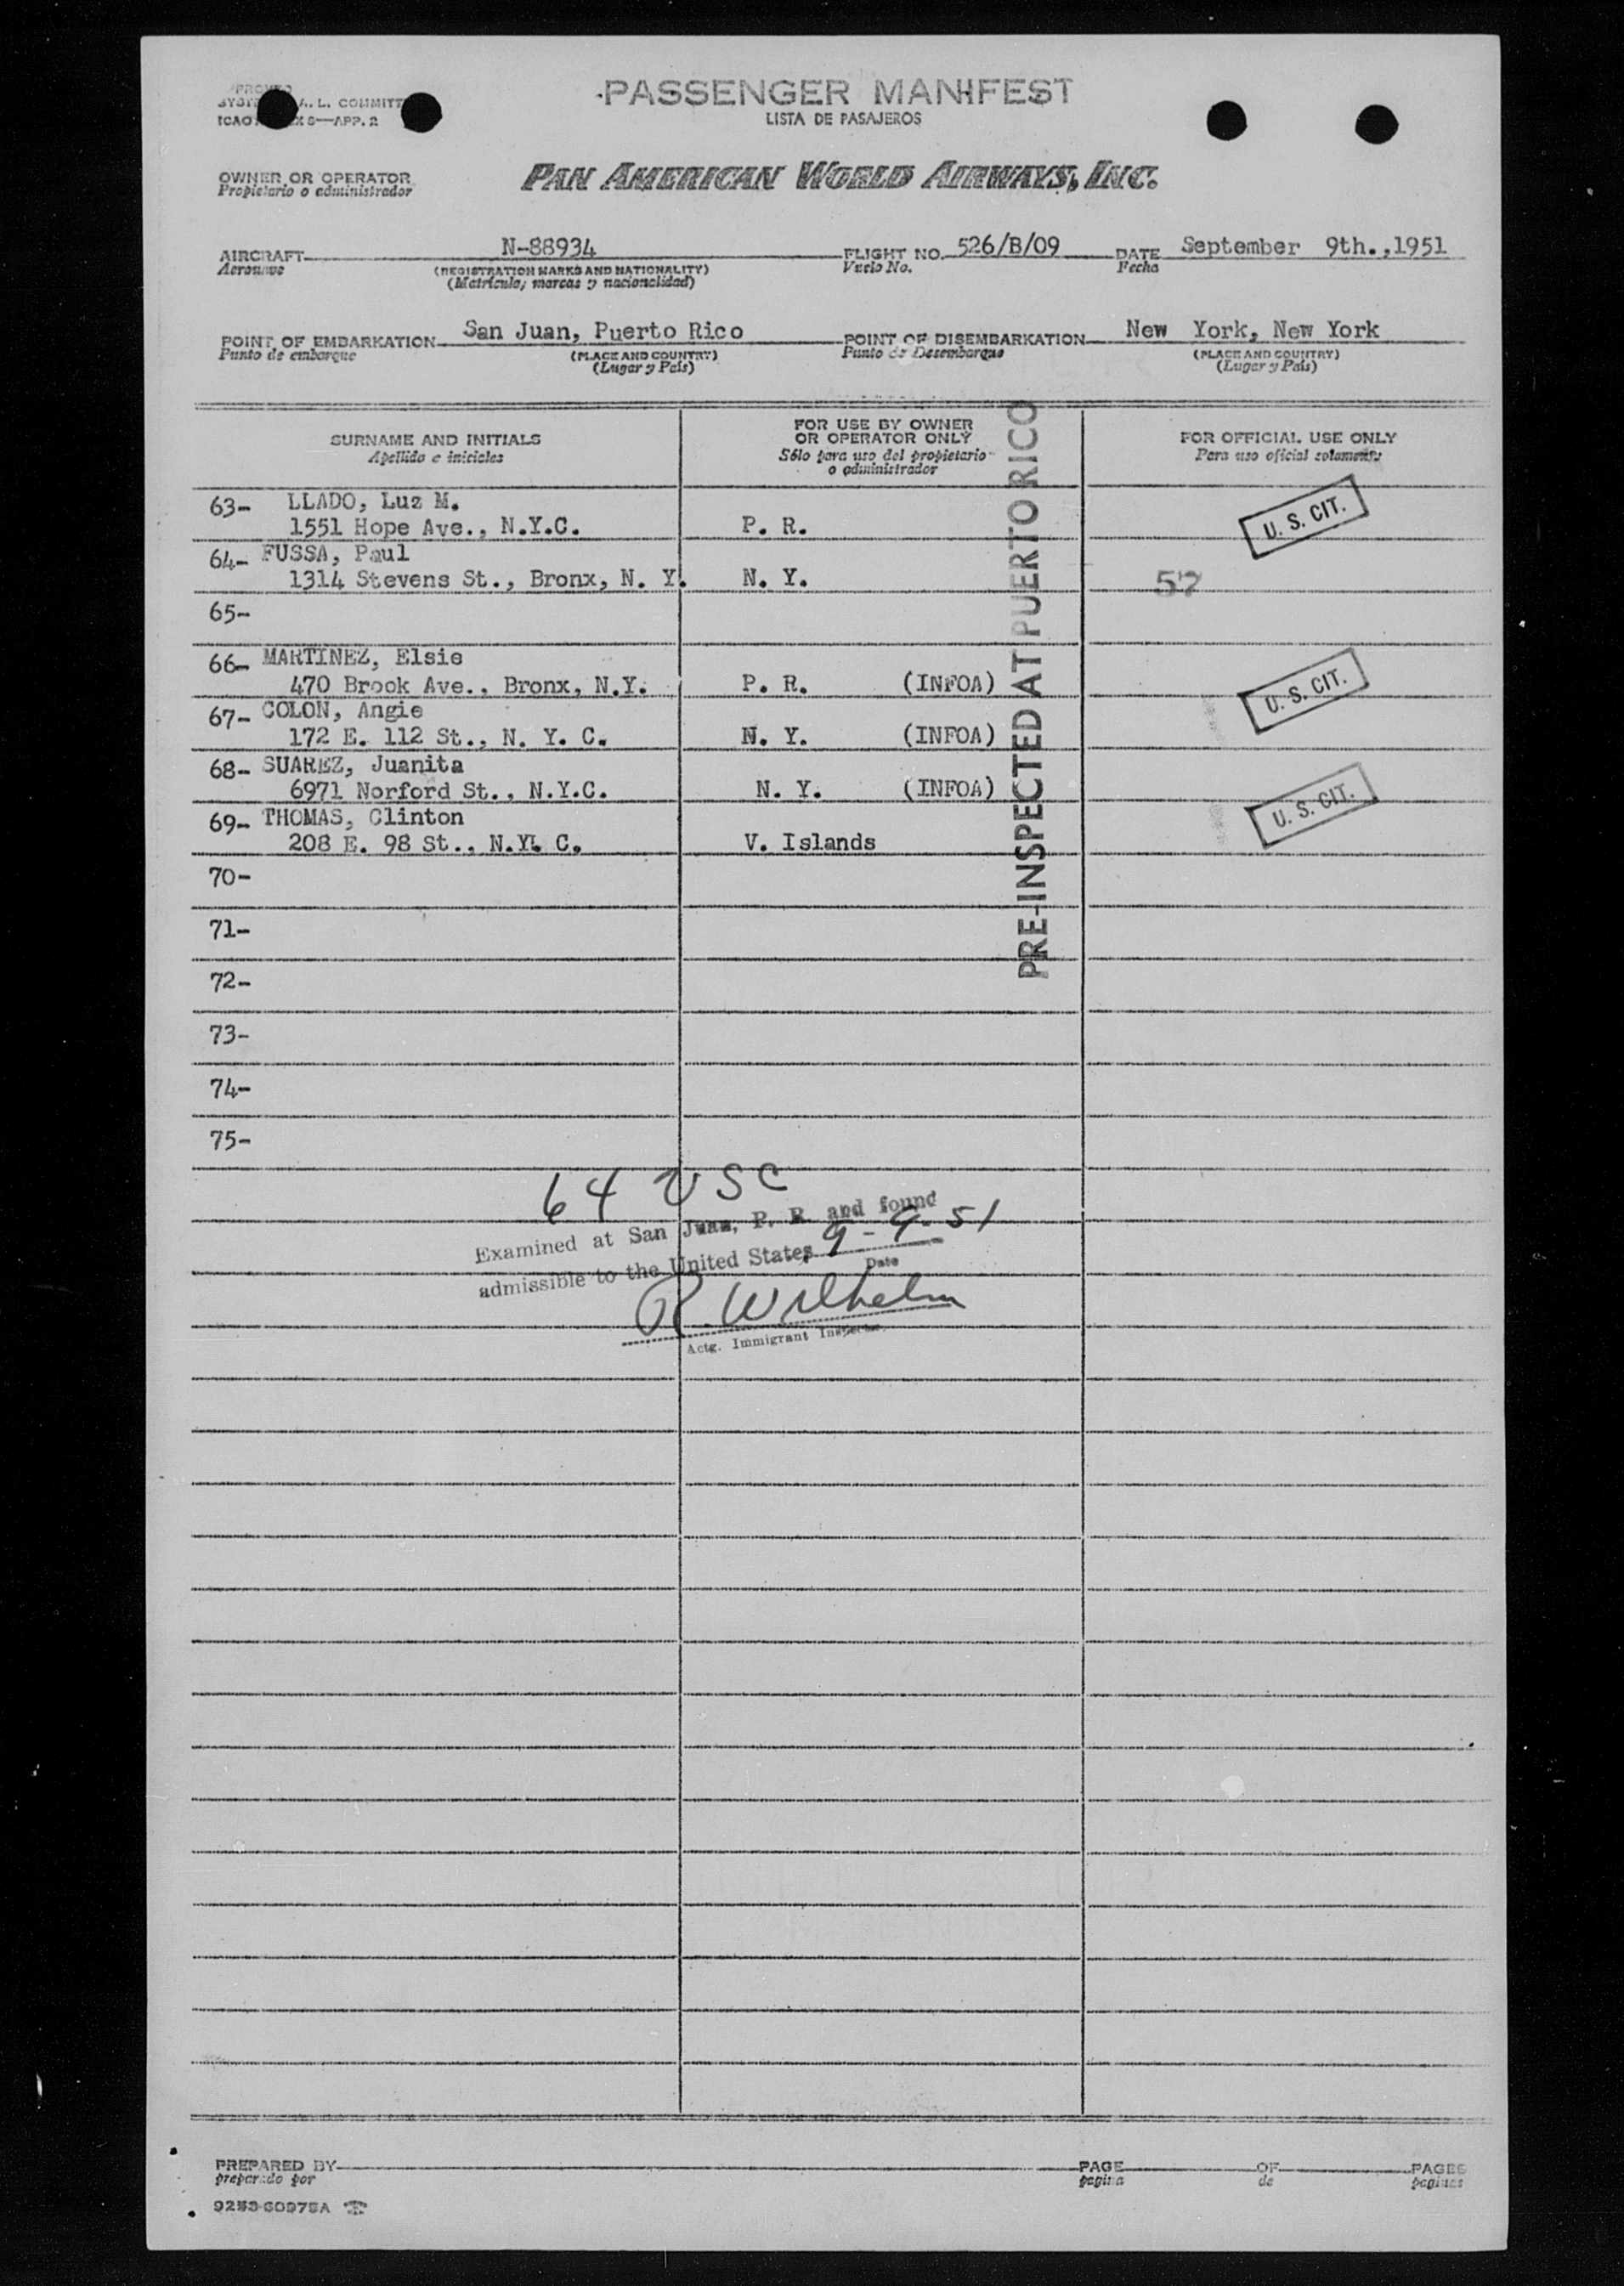 PASSENGER MANIFEST
LISTA DE PASAJEROS
A. L. COMMITT
ICAO X 8—APP. 2
OWNER OR OPERATOR
Propietario o administrador
PAN AMERICAN WORLD AIRWAYS, INC.
AIRCRAFT N-88934 FLIGHT NO. 526/B/09 DATE September 9th.,1951
Aeronave (REGISTRATION MARKS AND NATIONALITY) Vuelo No. Fecha
(Matricula, marcas y nacionalidad)
POINT OF EMBARKATION San Juan, Puerto Rico POINT OF DISEMBARKATION New York, New York
Punto de embarque (PLACE AND COUNTRY) Punto de Desembarque (PLACE AND COUNTRY)
(Lugar y País) (Lugar y País)
SURNAME AND INITIALS
Apellido e iniciales
FOR USE BY OWNER
OR OPERATOR ONLY
Sólo para uso del propietario
o administrador
FOR OFFICIAL USE ONLY
Para uso oficial solamente
PRE-INSPECTED AT PUERTO RICO
63- LLADO, Luz M.
1551 Hope Ave., N.Y.C. P. R. U. S. CIT.
64- FUSSA, Paul
1314 Stevens St., Bronx, N. Y. N. Y. 57
65-
66- MARTINEZ, Elsie
470 Brook Ave., Bronx, N.Y. P. R. (INFOA) U. S. CIT.
67- COLON, Angie
172 E. 112 St., N. Y. C. N. Y. (INFOA)
68- SUAREZ, Juanita
6971 Norford St., N.Y.C. N. Y. (INFOA) U. S. CIT.
69- THOMAS, Clinton
208 E. 98 St., N.Y. C. V. Islands
70-
71-
72-
73-
74-
75-
64 USC
Examined at San Juan, P. R. and found
admissible to the United States 9-9-51
Date
R. Wilhelm
Actg. Immigrant Inspector
PREPARED BY PAGE OF PAGES
preparado por pagina de paginas